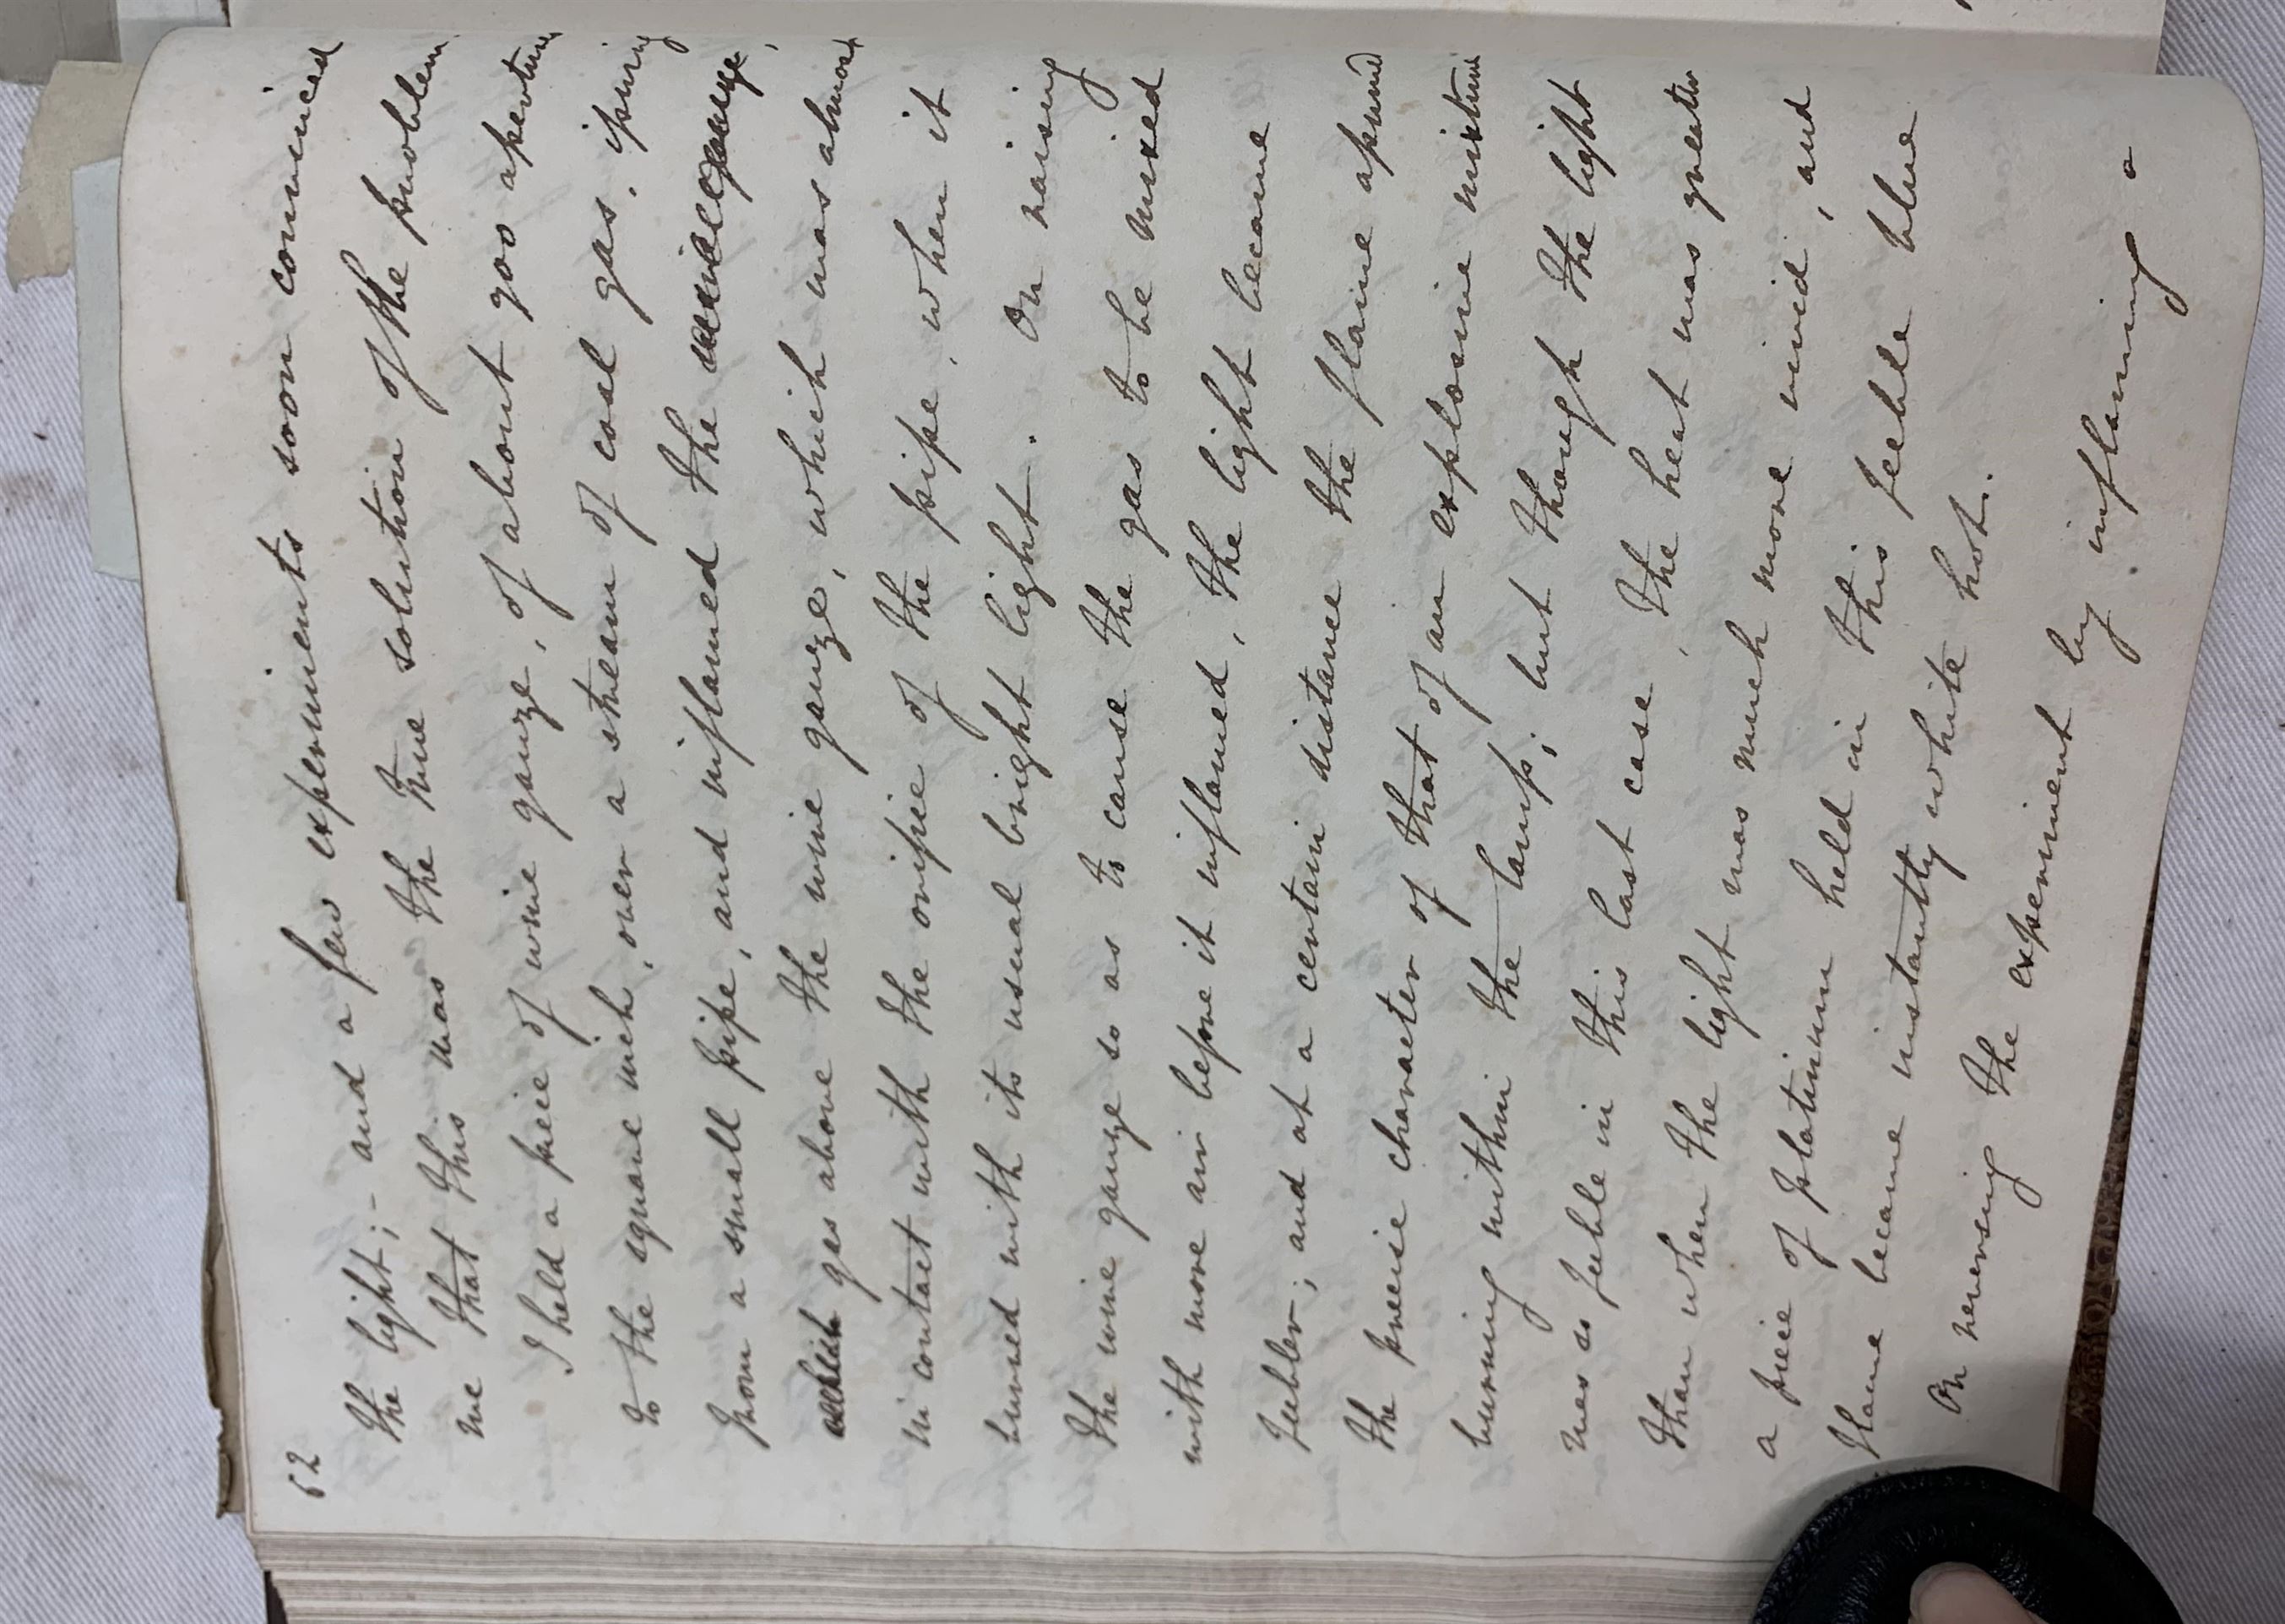 62
the light; - and a few experiments soon convinced
me that this was the true solution of the problem.
I held a piece of wire gauze, of about 900 apertures
to the square inch, over a stream of coal gas, issuing
from a small pipe, and inflamed the
gas above the wire gauze, which was almost
in contact with the orifice of the pipe, when it
burned with its usual bright light. On raising
the wire gauze so as to cause the gas to be mixed
with more air before it inflamed, the light became
feebler; and at a certain distance the flame assumed
the precise character of that of an explosive mixture
burning within the lamp; but though the light
was so feeble in this last case, the heat was greater
than when the light was much more vivid, and
a piece of platinum held in this feeble blue
flame became instantly white hot.
On reversing the experiment by inflaming a